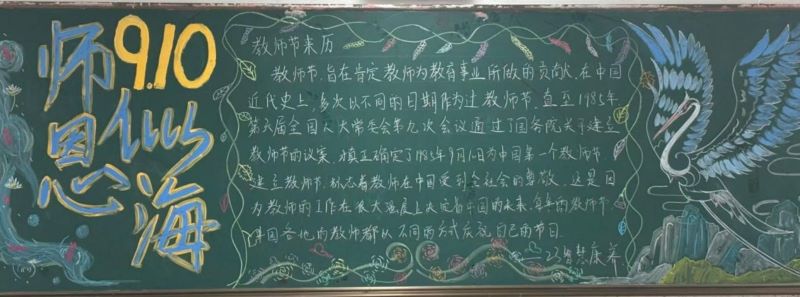 师恩似海
9.10
教师节来历
教师节,旨在肯定教师为教育事业所做的贡献。在中国
近代史上,多次以不同的日期作为过教师节。直至1985年
第六届全国人大常委会第九次会议通过了国务院关于建立
教师节的议案,才真正确定了1985年9月10日为中国第一个教师节。
建立教师节,标志着教师在中国受到全社会的尊敬。这是因
为教师的工作在很大程度上决定着中国的未来。每年的教师节
中国各地的教师都以不同的方式庆祝自己的节日。
23智慧康养